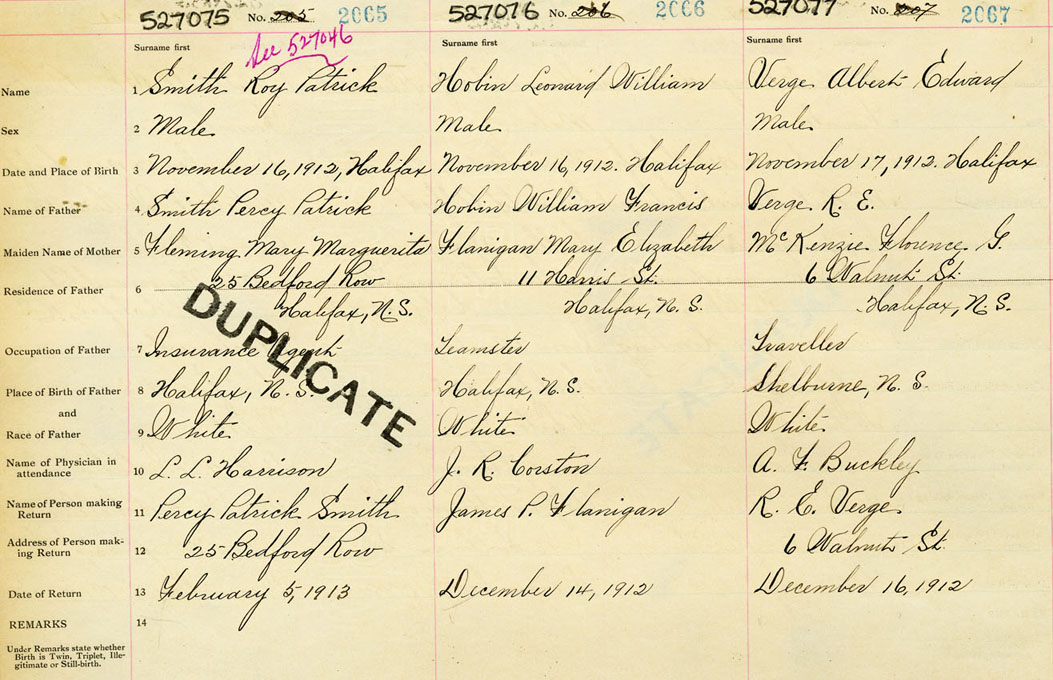 527075 No. 205 2065 527076 No. 206 2066 527077 No. 207 2067
See 527046
Surname first Surname first Surname first
Name 1 Smith Roy Patrick Hobin Leonard William Verge Albert Edward
Sex 2 Male Male Male
Date and Place of Birth 3 November 16, 1912, Halifax November 16, 1912. Halifax November 17, 1912. Halifax
Name of Father 4 Smith Percy Patrick Hobin William Francis Verge R. E.
Maiden Name of Mother 5 Fleming Mary Marguerita Flanigan Mary Elizabeth McKenzie Florence G.
Residence of Father 6 25 Bedford Row 11 Harris St. 6 Walnut St.
Halifax, N.S. Halifax, N.S. Halifax, N.S.
DUPLICATE
Occupation of Father 7 Insurance Agent Teamster Traveller
Place of Birth of Father 8 Halifax, N.S. Halifax, N.S. Shelburne, N.S.
and
Race of Father 9 White White White
Name of Physician in
attendance 10 L. L. Harrison J. R. Corston A. F. Buckley
Name of Person making
Return 11 Percy Patrick Smith James P. Flanigan R. E. Verge
Address of Person mak-
ing Return 12 25 Bedford Row 6 Walnut St.
Date of Return 13 February 5, 1913 December 14, 1912 December 16, 1912
REMARKS 14
Under Remarks state whether
Birth is Twin, Triplet, Ille-
gitimate or Still-birth.